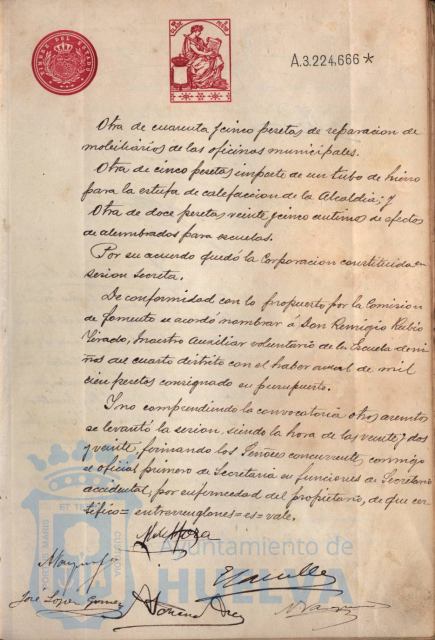 TIMBRE DEL ESTADO
A.3.224,666*
Otra de cuarenta y cinco pesetas de reparacion de
mobiliarios de las oficinas municipales.
Otra de cinco pesetas importe de un tubo de hierro
para la estufa de calefacion de la Alcaldia; y
Otra de doce pesetas veinte y cinco centimos de efectos
de alumbrados para escuelas.
Por su acuerdo quedó la Corporacion constituida en
sesion secreta.
De conformidad con lo propuesto por la Comision
de Fomento se acordó nombrar á Don Remigio Rubio
Tirado, Maestro Auxiliar voluntario de la Escuela de ni-
ños del cuarto distrito con el haber anual de mil
cien pesetas consignado en presupuesto.
Y no comprendiendo la convocatoria otros asuntos
se levantó la sesion, siendo la hora de las veinte y dos
y veinte, firmando los Señores concurrentes conmigo
el oficial primero de Secretaria en funciones de Secretario
accidental, por enfermedad del propietario, de que cer-
tifico= entrerrenglones=es=vale.
Ayuntamiento de
HUELVA
José López Gomez